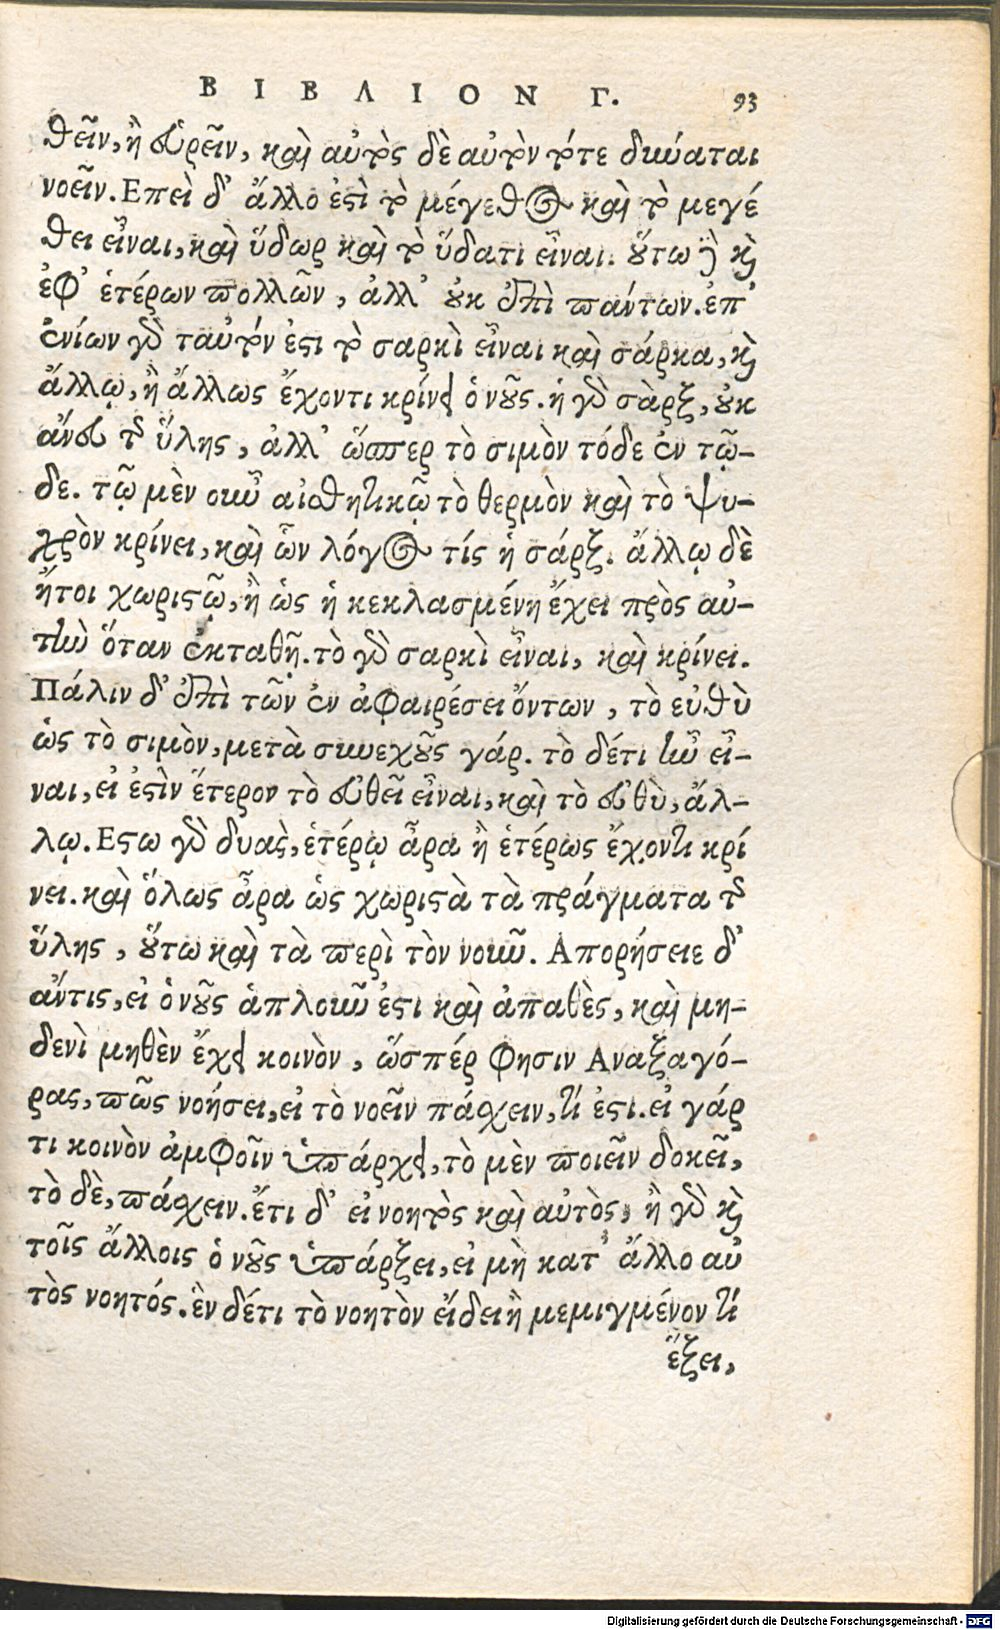 ΒΙΒΛΙΟΝ Γ. 93
θεῖν, ἢ εὑρεῖν, καὶ αὐτὸς δὲ αὑτὸν τότε δύναται
νοεῖν. Επεὶ δ' ἄλλο ἐστὶ τὸ μέγεθος καὶ τὸ μεγέ
θει εἶναι, καὶ ὕδωρ καὶ τὸ ὕδατι εἶναι. οὕτω δὴ καὶ
ἐφ' ἑτέρων πολλῶν, ἀλλ' οὐκ ἐπὶ πάντων. ἐπ'
ἐνίων γὰρ ταὐτόν ἐστι τὸ σαρκὶ εἶναι καὶ σάρκα, καὶ
ἄλλῳ, ἢ ἄλλως ἔχοντι κρίνει ὁ νοῦς. ἡ γὰρ σὰρξ, οὐκ
ἄνευ τῆς ὕλης, ἀλλ' ὥσπερ τὸ σιμὸν τόδε ἐν τῷ-
δε. τῷ μὲν οὖν αἰσθητικῷ τὸ θερμὸν καὶ τὸ ψυ-
χρὸν κρίνει, καὶ ὧν λόγος τίς ἡ σάρξ. ἄλλῳ δὲ
ἤτοι χωριστῷ, ἢ ὡς ἡ κεκλασμένη ἔχει πρὸς αὑ-
τὴν ὅταν ἐκταθῇ. τὸ γὰρ σαρκὶ εἶναι, καὶ κρίνει.
Πάλιν δ' ἐπὶ τῶν ἐν ἀφαιρέσει ὄντων, τὸ εὐθὺ
ὡς τὸ σιμὸν, μετὰ συνεχοῦς γάρ. τὸ δέ τι ἦν εἶ-
ναι, εἰ ἐστὶν ἕτερον τὸ εὐθεῖ εἶναι, καὶ τὸ εὐθὺ, ἄλ-
λῳ. Εστω γὰρ δυὰς, ἑτέρῳ ἆρα ἢ ἑτέρως ἔχοντι κρί
νει. καὶ ὅλως ἆρα ὡς χωριστὰ τὰ πράγματα τῆς
ὕλης, οὕτω καὶ τὰ περὶ τὸν νοῦν. Απορήσειε δ'
ἄν τις, εἰ ὁ νοῦς ἁπλοῦν ἐστι καὶ ἀπαθὲς, καὶ μη-
δενὶ μηθὲν ἔχει κοινὸν, ὥσπέρ φησιν Αναξαγό-
ρας, πῶς νοήσει, εἰ τὸ νοεῖν πάσχειν, τί ἐστι. εἰ γάρ
τι κοινὸν ἀμφοῖν ὑπάρχει, τὸ μὲν ποιεῖν δοκεῖ,
τὸ δὲ, πάσχειν. ἔτι δ' εἰ νοητὸς καὶ αὐτὸς, ἢ γὰρ καὶ
τοῖς ἄλλοις ὁ νοῦς ὑπάρξει, εἰ μὴ κατ' ἄλλο αὐ
τὸς νοητός. ἓν δέ τι τὸ νοητὸν εἴδει ἢ μεμιγμένον τί
ἕξει,
Digitalisierung gefördert durch die Deutsche Forschungsgemeinschaft - DFG